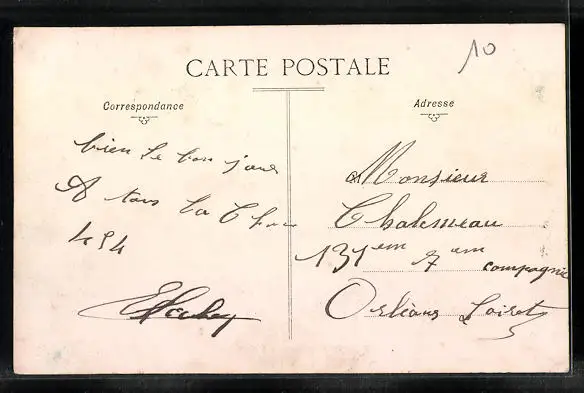 10
CARTE POSTALE
Correspondance
Adresse
bien le bon jour
A tous la
4 54
Monsieur
Chalumeau
131em 7em compagnie
Orléans Loiret